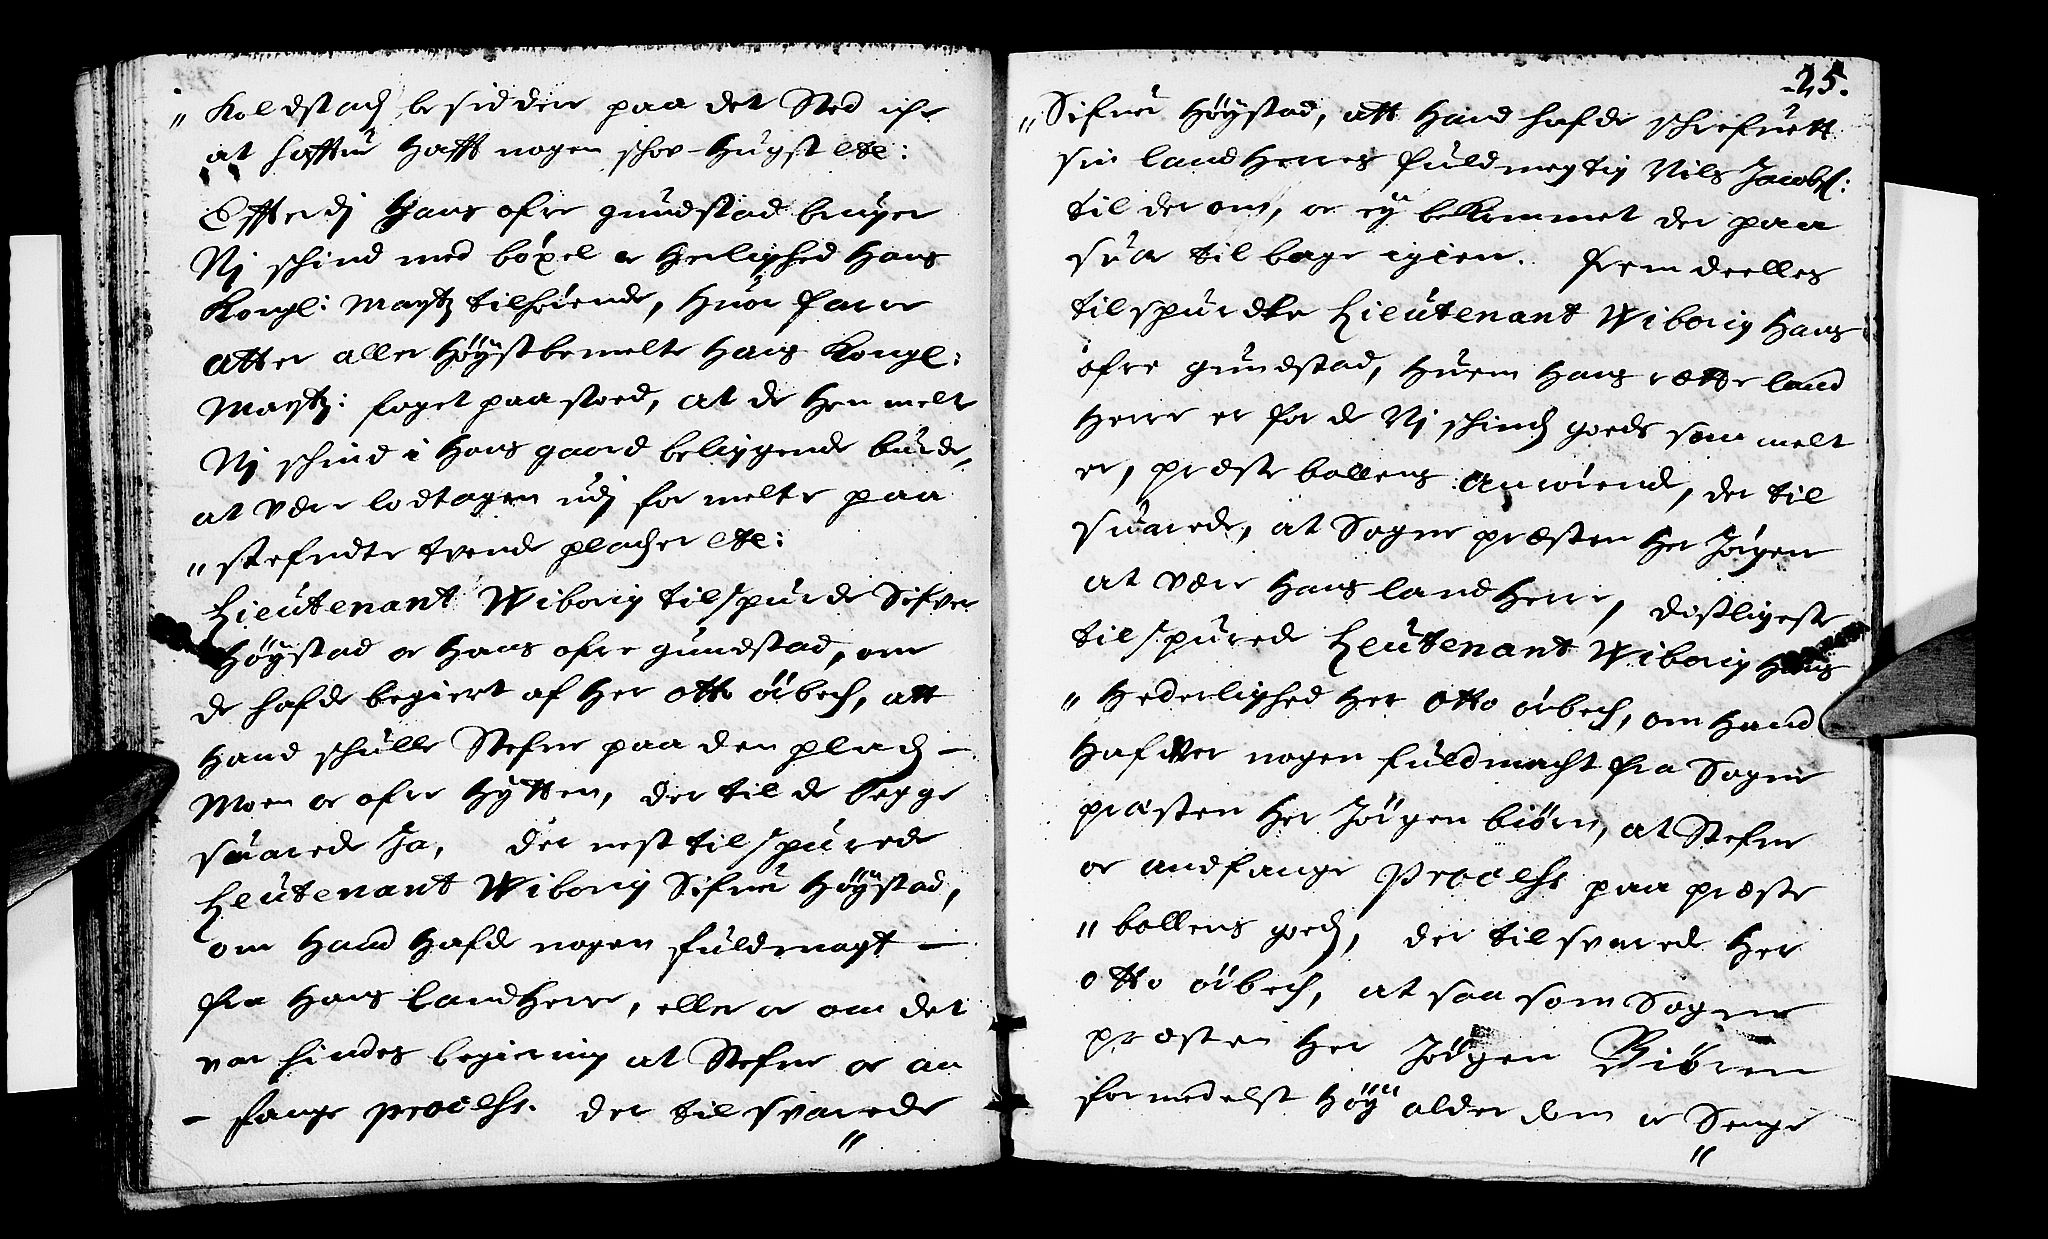 " Koldstad besidder paa det Sted iche
at haffue hafft nogen schov-Hugst etc:
Effterdj Hans ofre gundstad bruger
Nj schind med böxel oc herlighed Hans
Kongl: Maytz tilhörende, huor faare
atter aller Höystbemelte Hans Kongl:
Maytz: foget paastoed, at de hen melte
Nj schind i Hans gaard beliggende burde,
at være lodtagen udj for melte paa
" stefndte tvende pladser etc:
Lieutenant Wiborig tilspurde Sifver
Höystad oc Hans ofre gundstad, om
de hafde begiert af Her Otto öibech, att
Hand schulle Stefne paa den pladz -
Moen oc ofre Hytten, der til de begge
suarede Ja, der nest tilspurede
Leutenant Wiborig Sifuer Höystad,
om Hand Hafde nogen fuldmagt -
fra Hans landherre, eller oc om det
var hindes begiering at Stefne oc an
- fange process. der til svarede
"
25.
" Sifuer Höystad, att Hand hafde schrefuett
sin landherres fuldmegtig Nils Jacobs:
til der om, oc ey bekommet der paa
suar tilbage igien. fremdeelles
tilspurdte Lieutenant Wiborig Hans
ofre gundstad, huem Hans rætte land
herre er for de Nj schindz goeds som melt
er, præstebollens anrörende, der til
suarede, at Sogne præsten Her Jörgen
at være Hans landherre, disligeste
tilspurede Leutenant Wiborig Hans
" Hederlighed Her Otto öibech, om Hand
Hafuer nogen fuldmacht fra Sogne
præsten Her Jörgen biörn, at Stefne
oc andfange Process paa præste
" bollens goedz, der til svarede Her
Otto öibech, at saa som Sogne
præsten Her Jörgen Biören
formedelst Höy alderdom oc Senge
"